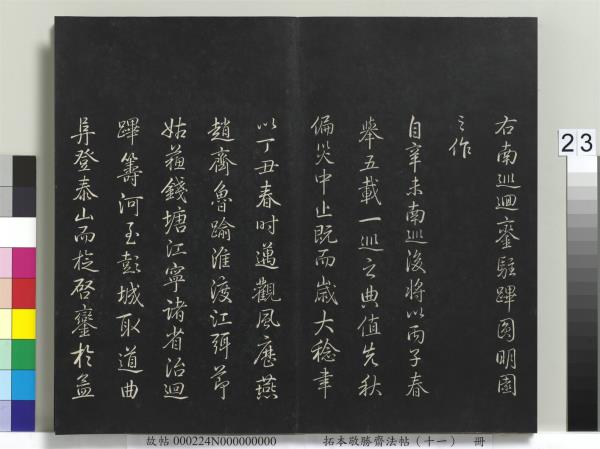 右南巡迴鑾駐蹕圓明園
之作
自辛未南巡後將以丙子春
舉五載一巡之典值先秋
偏災中止既而歲大稔聿
以丁丑春時邁觀風歷燕
趙齊魯踰淮渡江弭節
姑蘇錢塘江寧諸省治迴
蹕籌河至彭城取道曲
阜登泰山而旋啓鑾於孟
23
故帖 000224N000000000 拓本敬勝齋法帖(十一) 冊